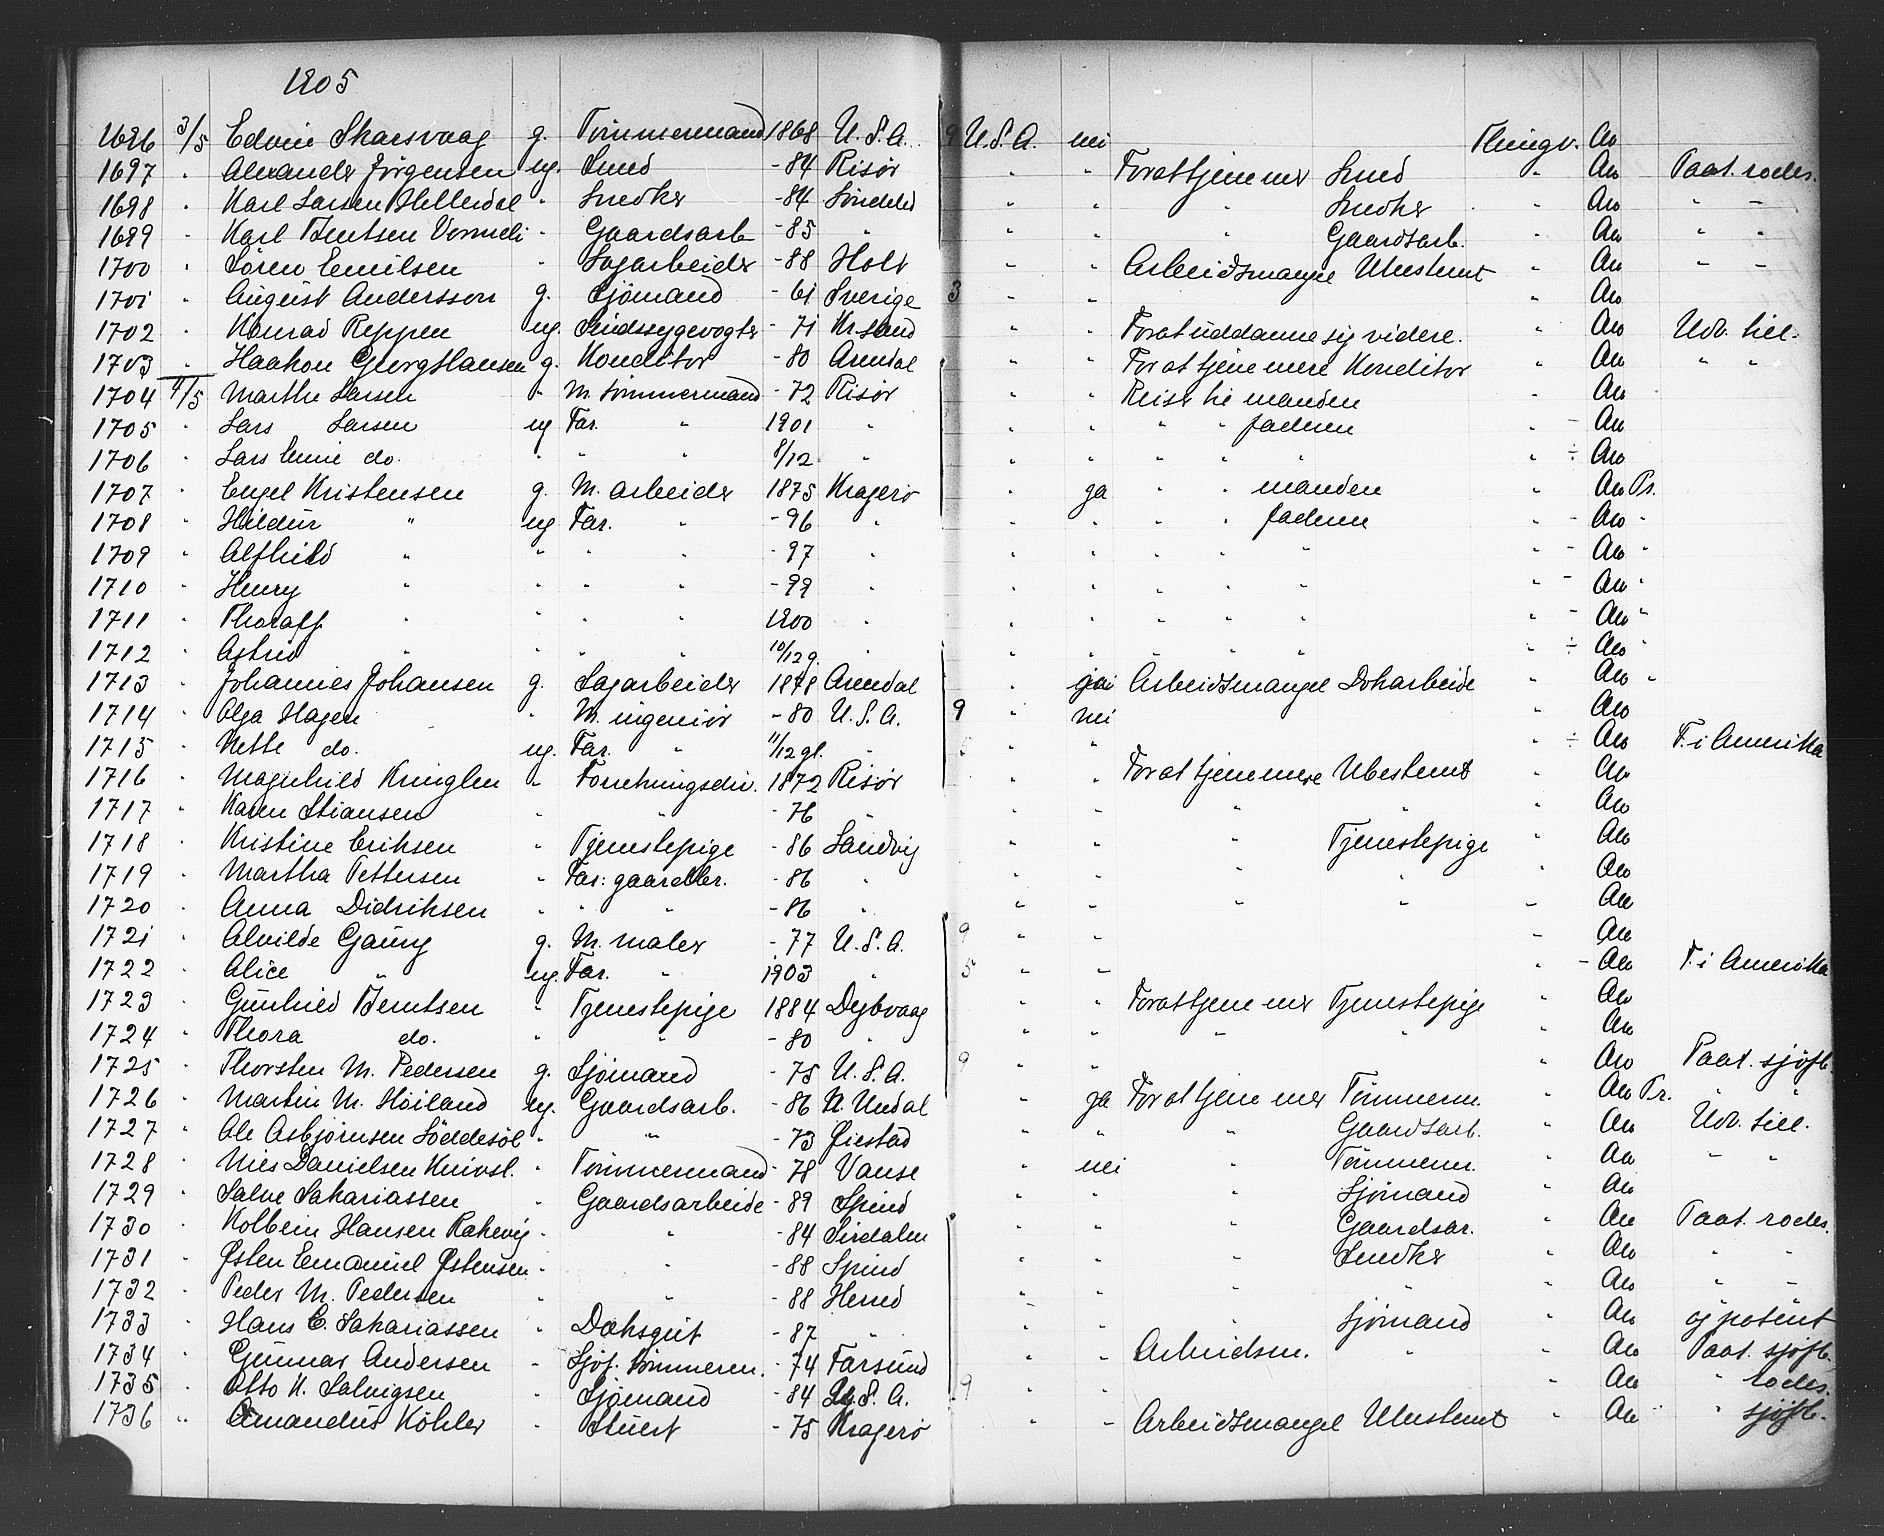 1905
1696 3/5 Edvin Skarsvaag g. Tømmermand 1868 U. S. A. 9 U. S. A. nei Thingv. An
1697 " Alexander Jørgensen ug. Smed - 84 Risør " " For at tjene mer Smed " An Paat. rodes.
1698 " Karl Larsen Hellerdal " Snedker - 84 Søndeled " " " Snedker " An " -
1699 " Karl Bentsen " Gaardsarb - 85 " " " " Gaardsarb. " An " "
1700 " Søren Emilsen " Sagarbeider - 88 Holt " " Arbeidsmangel Ubestemt " An " -
1701 " August Andersson g. Sjømand - 61 Sverige 3 " " " An
1702 " Konrad Reppen ug. Sindssygevogter - 71 Kr.sand " " For at uddanne sig videre. " An Udv. till.
1703 " Haakon Georg Hansen g. Konditor - 80 Arendal " " For at tjene mere Konditor " An " "
1704 4/5 Marthe Larsen " M. tømmermand - 72 Risør " " Reise til manden " An
1705 " Lars Larsen ug Far. " 1901 " " " " " faderen " - An
1706 " Lars do. " " " 8/12 " " " " " " " ÷ An
1707 " Engel Kristensen g. M. arbeider 1875 Kragerø " ja " " manden " An Pr.
1708 " Hildur " ug Far. " - 96 " " " " " faderen " - An "
1709 " Alfhild " " " " - 97 " " " " " " " - An "
1710 " Henry " " " " - 99 " " " " " " " - An "
1711 " Thoralf " " " " 1900 " " " " " " " - An "
1712 " Astrid " " " " 10/12 g. " " " " " " " ÷ An "
1713 " Johannes Johansen g. Sagarbeider 1878 Arendal " Arbeidsmangel Dokarbeide " An "
1714 " Olga Hagen " M. ingeniør - 80 U. S. A. 9 " nei " An
1715 " Nette do. ug. Far. " 11/12 gl. " " " " ÷ An F. i Amerika
1716 " Magnhild Kringlen " Forretningsdri. 1872 Risør " " For at tjene mere Ubestemt " An
1717 " Karen Stiansen " " - 76 " " " " " " An
1718 " Kristine Eriksen " Tjenestepige - 86 Sandvig " " " Tjenestepige " An
1719 " Martha Pettersen " Far: gaardbr. - 86 " " " " " " An
1720 " Anna Didriksen " " " - 86 " " " " " " An
1721 " Alvilde g. M. maler - 77 U. S. A. 9 " " " An
1722 " Alice " ug. Far. " 1903 " 5 " " " - An F. i Amerika
1723 " Gunhild Berntsen " Tjenestepige 1884 Dybvaag " " For at tjene mer Tjenestepige " An
1724 " Thora do. " " - 80 " " " " " " An
1725 " Thorsten M. Pedersen g. Sjømand - 75 U. S. A. 9 " " " An Paat. sjøfb.
1726 " Martin M. Høiland ug. Gaardsarb. - 86 N. Undal " ja For at tjene mer Tømmerm. " An Pr. " "
1727 " Ole Asbjørnsen " " - 73 Øiestad " " " Gaardsarb. " An Udv. till.
1728 " Nies Danielsen " Tømmermand - 78 Vanse " nei " Tømmerm. " An " "
1729 " Salve Sakariassen " Gaardsarbeide - 89 Spind " " " Sjømand " An
1730 " Kolbein Hansen Rakevig " " - 84 Sirdalen " " " Gaardsar. " An Paat. rodes.
1731 " Østen Emanuel Østensen " " - 88 Spind " " " Snedker " An " "
1732 " Peder M. Pedersen " " - 88 Herred " " " " " An " -
1733 " Hans E. Sakariassen " Døksgut - 87 " " " " Sjømand " An ej potent
1734 " Gunnar Andersen " Sjøf. tømmerm. - 74 Farsund " " Arbeidsm. " " An Paat. sjøfb.
1735 " Otto N. Salvigsen " Sjømand - 84 U. S. A. 9 " " " An " rodes.
1736 " Amandus Köhler " Stuert - 75 Kragerø " " Arbeidsmangel Ubestemt " An " " sjøfb.